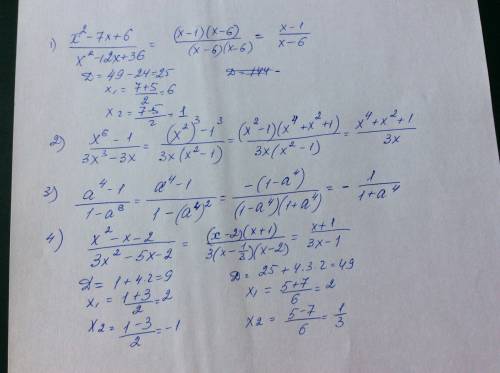 1) (x² - 7x + 6)/(x² - 12x + 36) = ((x-1)(x-6))/((x-6)(x-6)) = (x-1)/(x-6)
D = 49 - 24 = 25 D = 144 -
x₁ = (7+5)/2 = 6
x₂ = (7-5)/2 = 1
2) (x⁶ - 1)/(3x³ - 3x) = ((x²)³ - 1³)/(3x(x² - 1)) = ((x²-1)(x⁴ + x² + 1))/(3x(x² - 1)) = (x⁴ + x² + 1)/(3x)
3) (a⁴ - 1)/(1 - a⁸) = (a⁴ - 1)/(1 - (a⁴)²) = (-(1 - a⁴))/((1 - a⁴)(1 + a⁴)) = - 1/(1 + a⁴)
4) (x² - x - 2)/(3x² - 5x - 2) = ((x-2)(x+1))/(3(x - 1/3)(x-2)) = (x+1)/(3x-1)
D = 1 + 4·2 = 9 D = 25 + 4·3·2 = 49
x₁ = (1+3)/2 = 2 x₁ = (5+7)/6 = 2
x₂ = (1-3)/2 = -1 x₂ = (5-7)/6 = 1/3